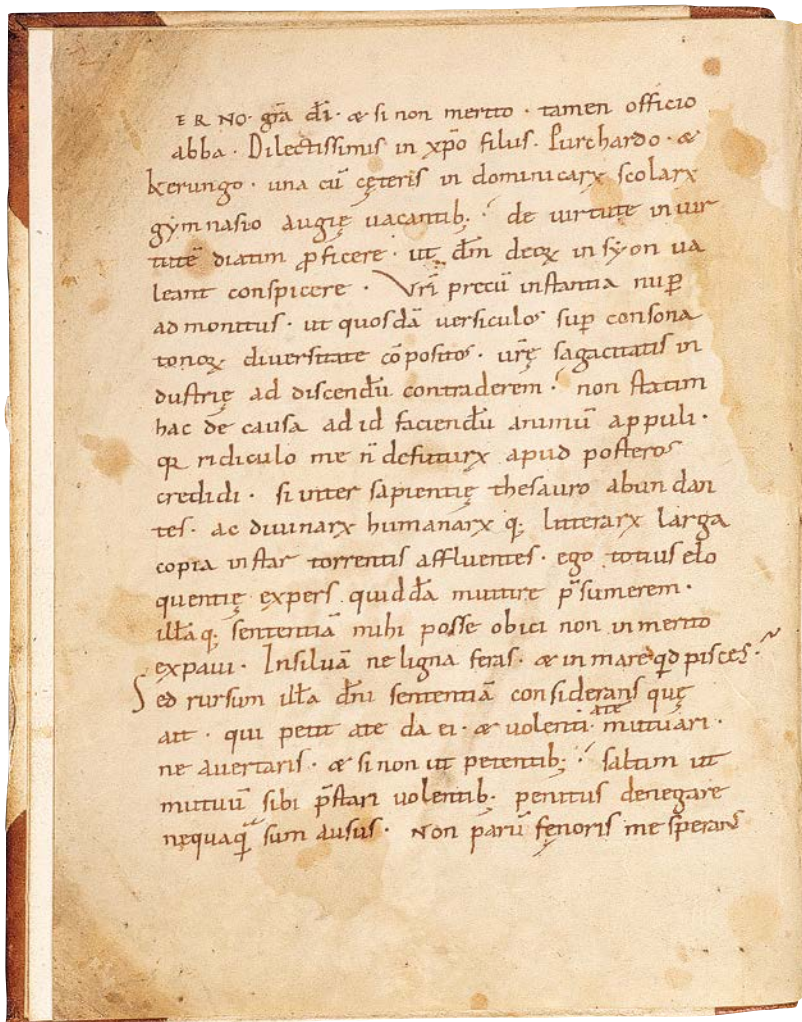 ERNO· gr̄a d̄i· & si non merito · tamen officio
abba · Dilectissimis in xp̄o filiis · Purchardo · &
kerungo · una cū cęteris in dominicarꝝ scolarꝝ
gymnasio augię uacantib; · de uirtute in uir
tutē diatim ꝓficere · ut d̄m deoꝝ in syon ua
leant conspicere · Vr̄i precū instantia nuꝑ
admonitus · ut quosdā uersiculos suꝑ consona
tonoꝝ diuersitate cōpositos · ur̄ę sagacitatis in
dustrię ad discendū contraderem · non statim
hac de causa ad id faciendū animū appuli ·
qꝛ ridiculo me n̄ defuturꝝ apud posteros
credidi · si inter sapientię thesauro abundan
tes · ac diuinarꝝ humanarꝝ q; litterarꝝ larga
copia instar torrentis affluentes · ego totius elo
quentię expers quiddā muttire p̄sumerem ·
illā q; sententiā mihi posse obici non inmerito
expaui · In siluā ne ligna feras · & in mare qd pisces ·
Sed rursum illā dn̄i sententiā considerans quę
ait · qui petit a te da ei · & uolenti a te mutuari ·
ne auertaris · & si non ut petentib; · saltim ut
mutuū sibi p̄stari uolentib; penitus denegare
nequaqͣ sum ausus · Non parū fęnoris me sperans